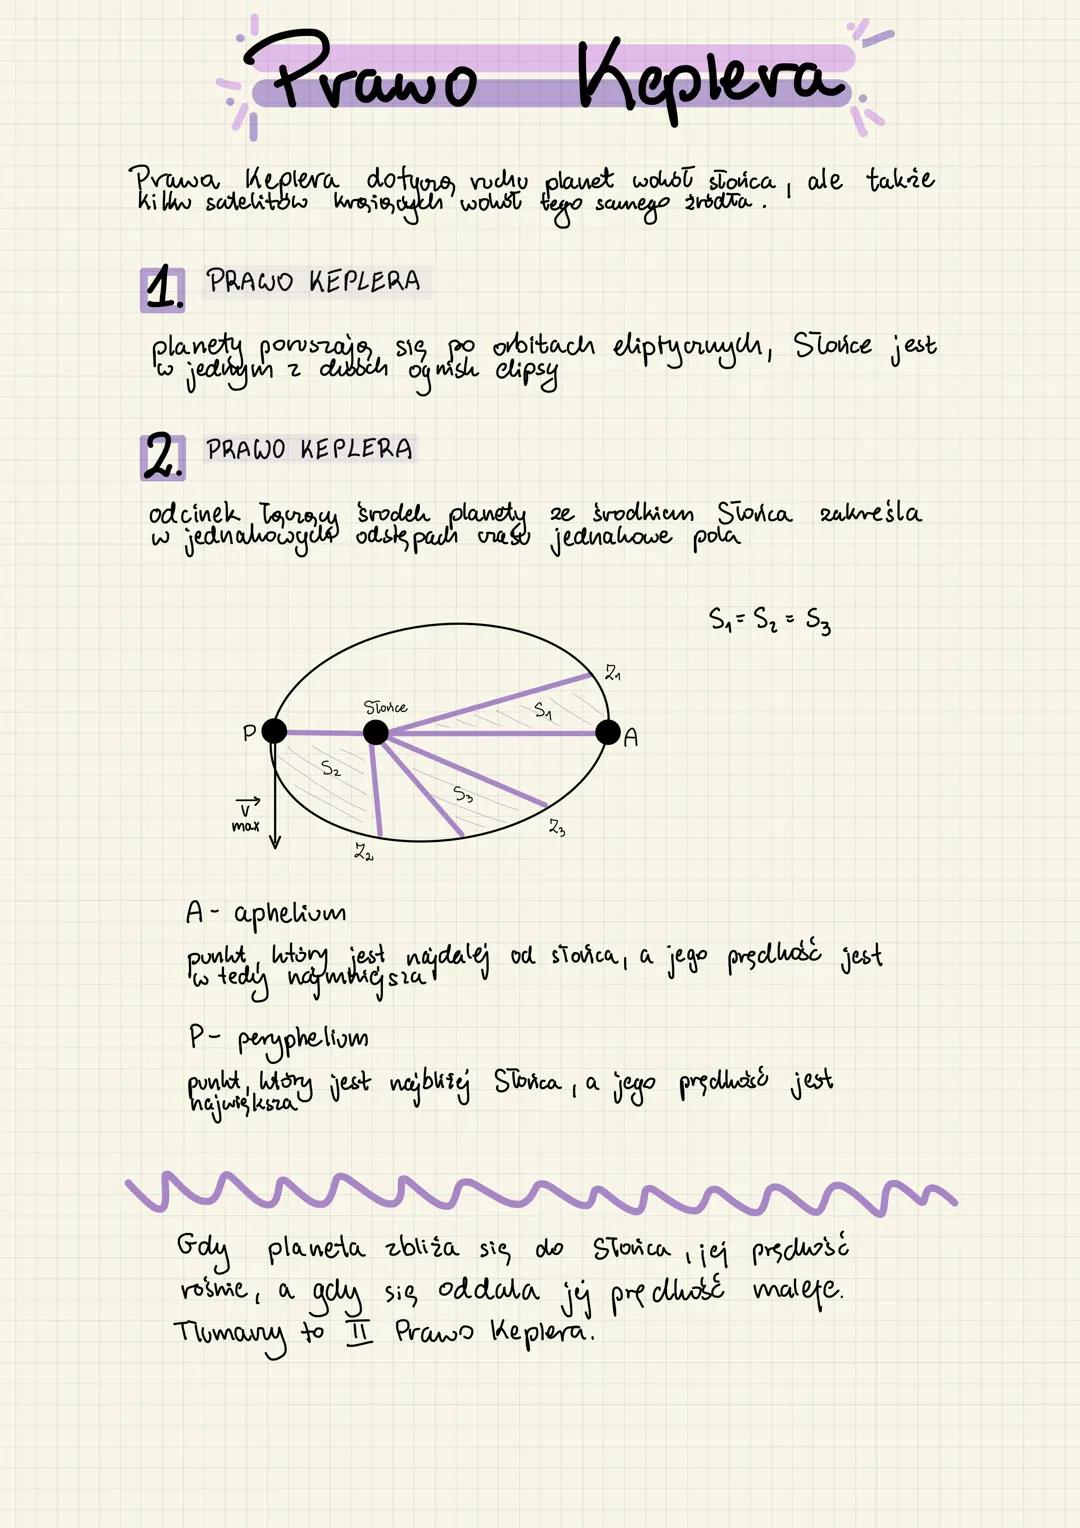 Prawo Keplera
Prawa Keplera dotyczą ruchu planet wokół słońca, ale także
kilku satelitów krążących wokół tego samego źródła.
1. PRAWO KEPLERA
planety poruszają się po orbitach eliptycznych, Słońce jest
w jednym z dwóch ognisk elipsy
2. PRAWO KEPLERA
odcinek łączący środek planety ze środkiem Słońca zakreśla
w jednakowych odstępach czasu jednakowe pola
S₁ = S₂ = S₃
Z₁
Słońce
S₁
P
A
S₂
S₃
v
max
Z₃
Z₂
A - aphelium
punkt, który jest najdalej od słońca, a jego prędkość jest
w tedy najmniejsza
P - peryphelium
punkt, który jest najbliżej Słońca, a jego prędkość jest
największa
Gdy planeta zbliża się do Słońca, jej prędkość
rośnie, a gdy się oddala jej prędkość maleje.
Tłumaczy to II Prawo Keplera.